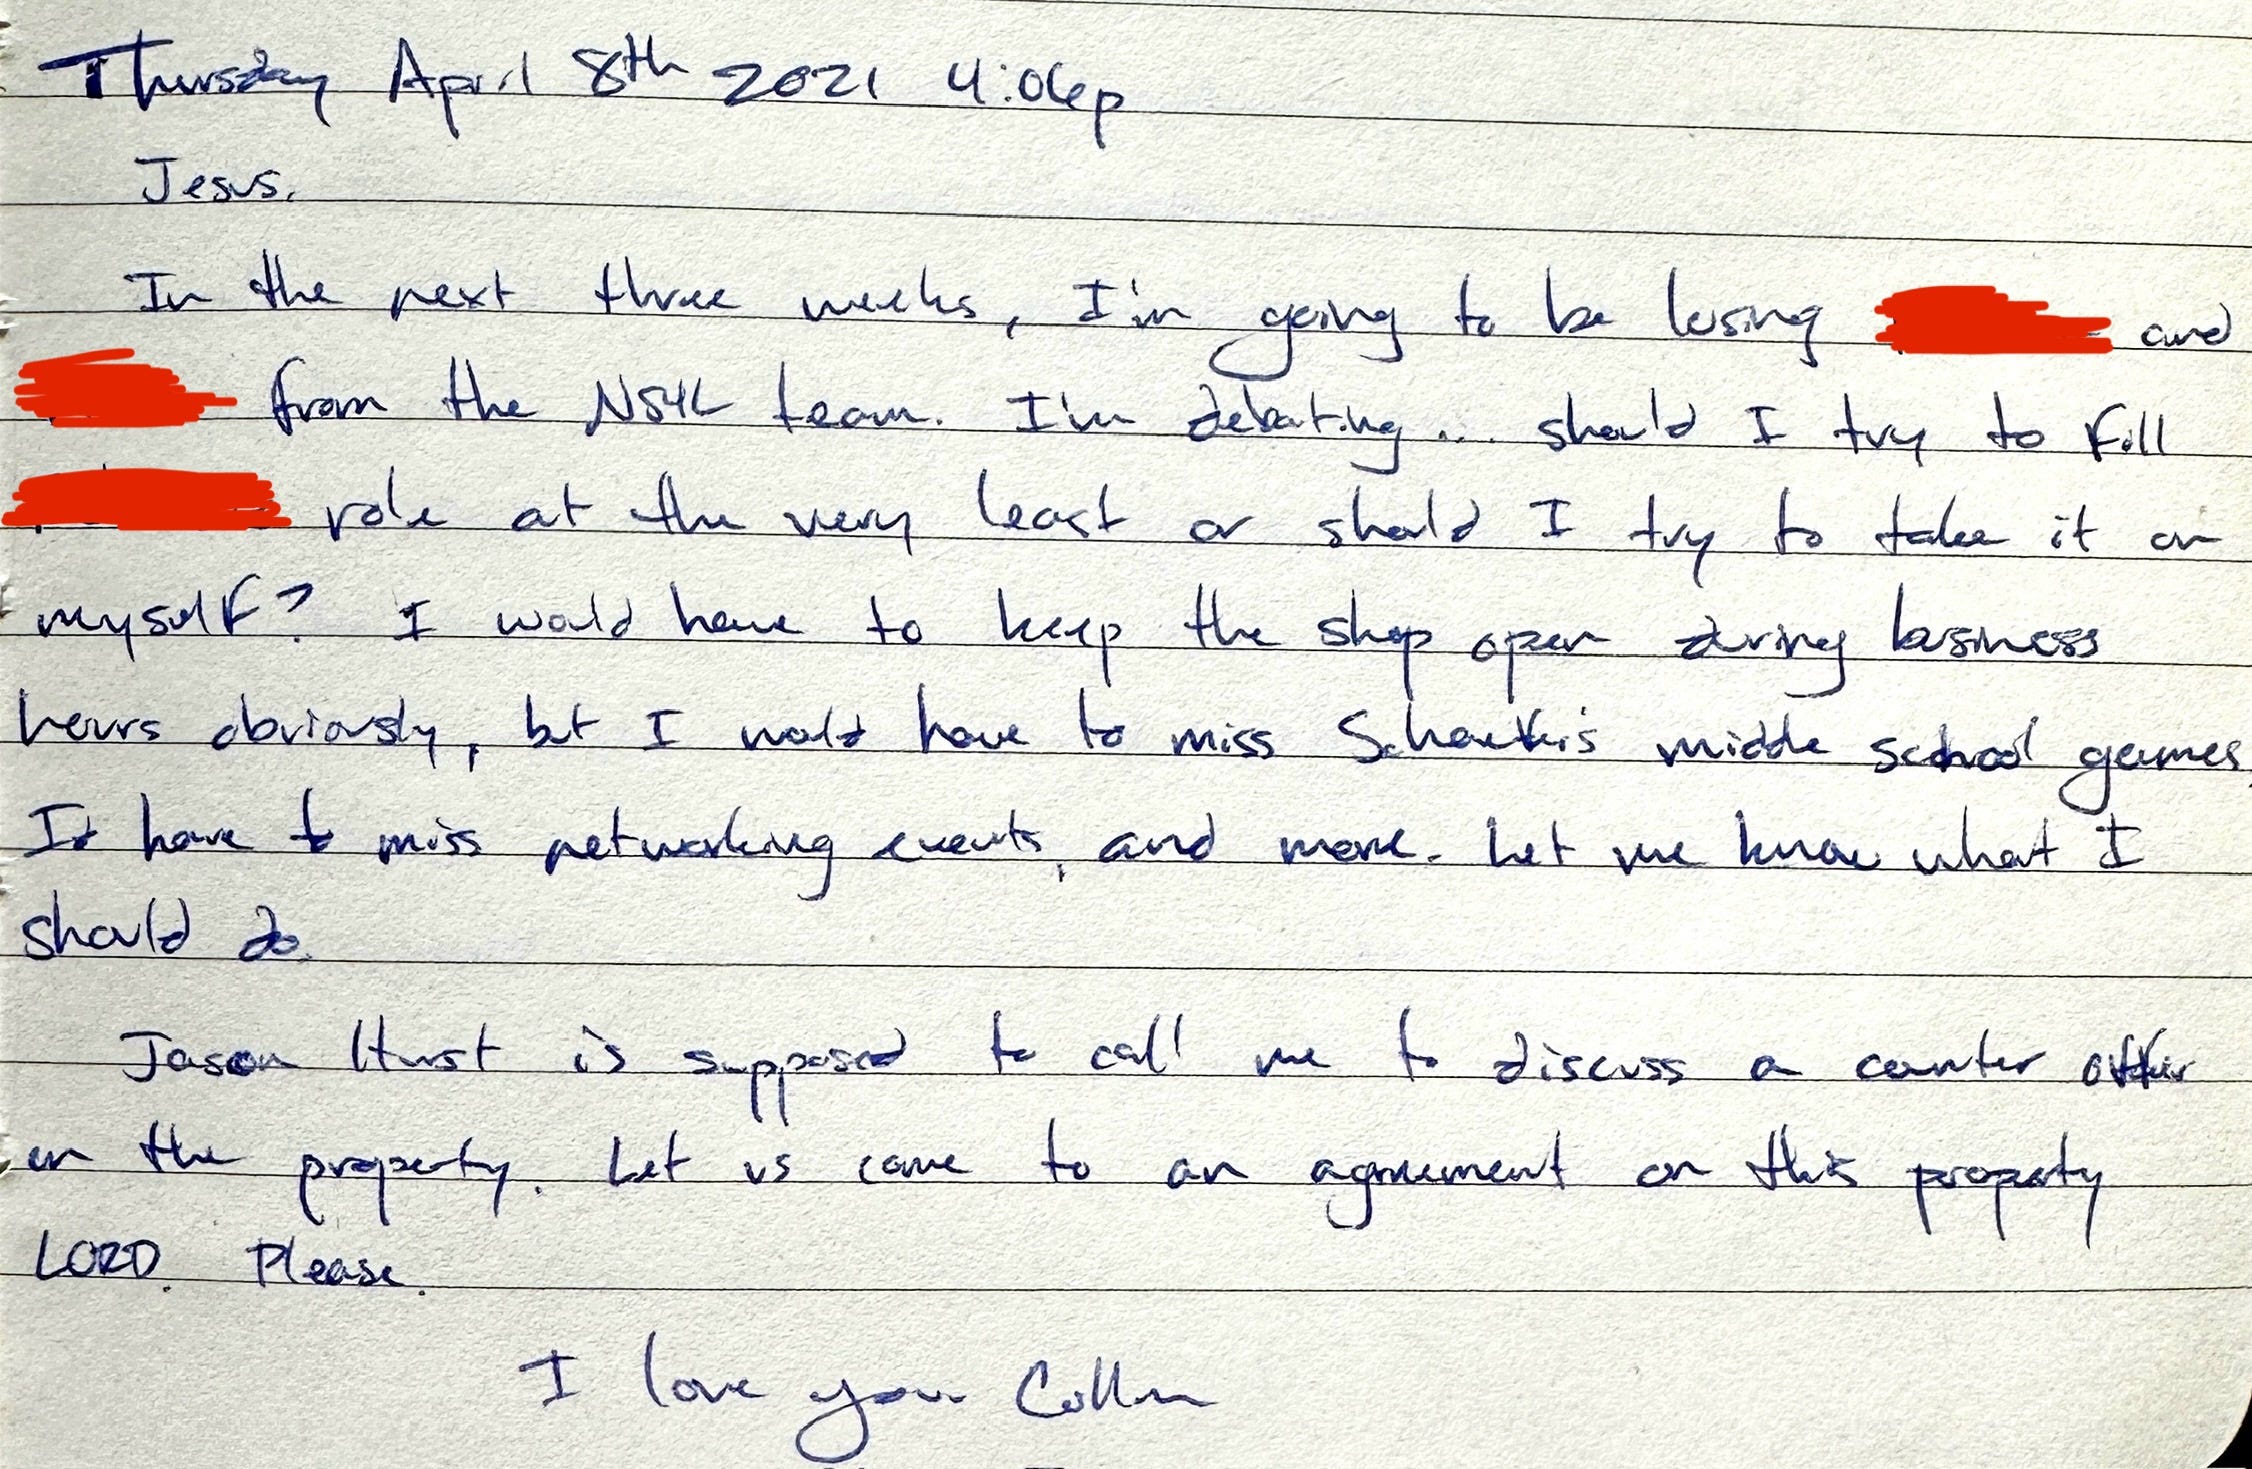 Thursday April 8th 2021 4:06p
Jesus,
In the next three weeks, I'm going to be losing and
from the NS4L team. I'm debating... should I try to fill
role at the very least or should I try to take it on
myself? I would have to keep the shop open during business
hours obviously, but I would have to miss middle school games,
I'd have to miss networking events, and more. Let me know what I
should do.
Jason Hurst is supposed to call me to discuss a counter offer
on the property. Let us come to an agreement on this property
LORD. Please.
I love you